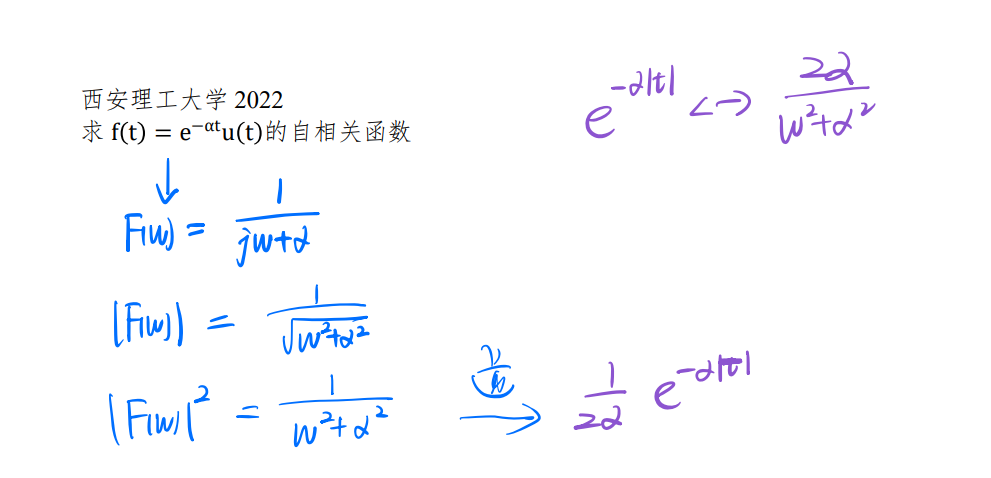 西安理工大学 2022
求 f(t) = e^{-αt}u(t)的自相关函数
e^{-α|t|} <-> \frac{2α}{w^2+α^2}
↓
F(w) = \frac{1}{jw+α}
|F(w)| = \frac{1}{\sqrt{w^2+α^2}}
|F(w)|^2 = \frac{1}{w^2+α^2} → \frac{1}{2α} e^{-α|τ|}